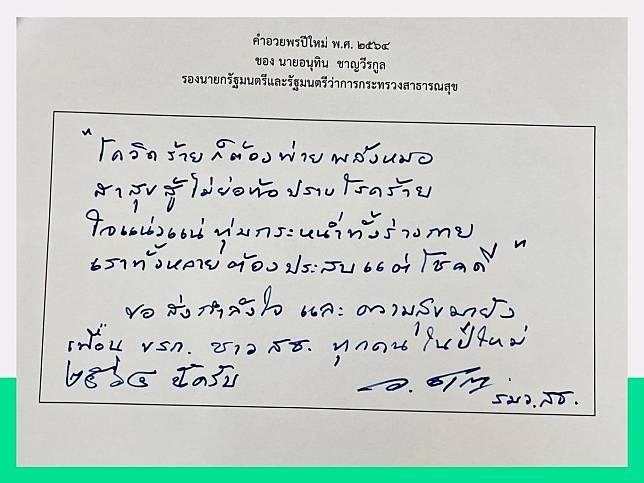 คำอวยพรปีใหม่ พ.ศ. ๒๕๖๔
ของ นายอนุทิน ชาญวีรกูล
รองนายกรัฐมนตรีและรัฐมนตรีว่าการกระทรวงสาธารณสุข
"โควิดร้ายก็ต้องพ่ายพลังหมอ
สาสุขสู้ไม่ย่อท้อปราบโรคร้าย
ใจแน่วแน่ทุ่มกระหน่ำทั้งร่างกาย
เราทั้งหลายต้องประสบแต่โชคดี"
ขอส่งกำลังใจ และความสุขมายัง
เพื่อน ขรก. ชาว สธ. ทุกคน ในปีใหม่
๒๕๖๔ นี้ครับ
รมว.สธ.